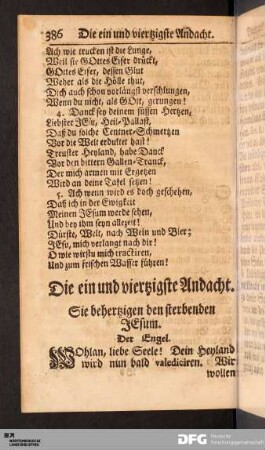 386 Die ein und viertzigste Andacht.
Ach wie trucken ist die Lunge,
Weil sie GOttes Eifer drückt,
GOttes Eifer, dessen Glut
Weher als die Hölle thut,
Dich auch schon vorlängst verschlungen,
Wenn du nicht, als GOtt, gerungen!
4. Danck sey deinem süssen Hertzen,
Liebster JEsu, Heil-Ballast,
Daß du solche Centner-Schmertzen
Vor die Welt erdultet hast!
Treuster Heyland, habe Danck
Vor den bittern Gallen-Tranck,
Der mich armen mit Ergetzen
Wird an deine Tafel setzen!
5. Ach wenn wird es doch geschehen,
Daß ich in der Ewigkeit
Meinen JEsum werde sehen,
Und bey ihm seyn allezeit!
Dürste, Welt, nach Wein und Bier;
JEsu, mich verlangt nach dir!
O wie wirstu mich tractiren,
Und zum frischen Wasser führen!
Die ein und viertzigste Andacht.
Sie behertzigen den sterbenden
JEsum.
Der Engel.
WOhlan, liebe Seele! Dein Heyland
wird nun bald valediciren. Wir
wollen
DFG Deutsche
Forschungsgemeinschaft